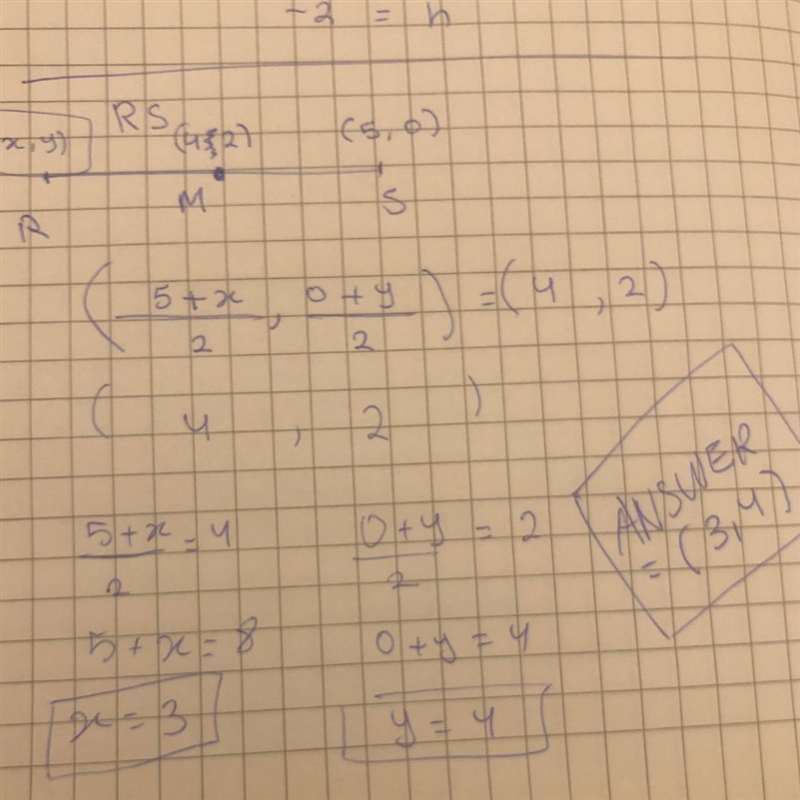 -2 = n
RS
x, y) (4, 2) (5, 0)
R M S
(5+x/2, 0+y/2) = (4, 2)
(4, 2)
5+x/2 = 4 0+y/2 = 2
5+x=8 0+y=4
x=3 y=4
ANSWER
= (3,4)